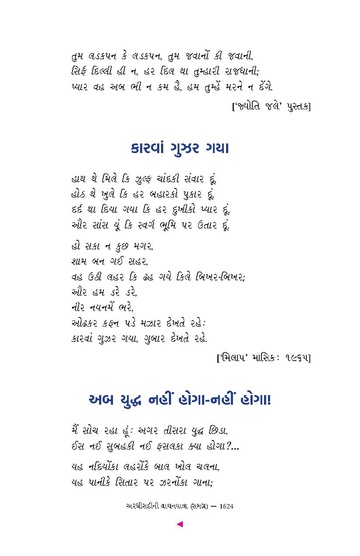 તુમ લડકપન કે લડકપન, તુમ જવાનોં કી જવાની,
સિર્ફ દિલ્લી હી ન, હર દિલ થા તુમ્હારી રાજધાની;
પ્યાર વહ અબ ભી ન કમ હૈ, હમ તુમ્હેં મરને ન દેંગે.
[‘જ્યોતિ જલે’ પુસ્તક]
કારવાં ગુઝર ગયા
હાથ થે મિલે કિ ઝુલ્ફ ચાંદકી સંવાર દૂં,
હોઠ થે ખુલે કિ હર બહારકો પુકાર દૂં,
દર્દ થા દિયા ગયા કિ હર દુખીકો પ્યાર દૂં,
ઔર સાંસ યૂં કિ સ્વર્ગ ભૂમિ પર ઉતાર દૂં,
હો સકા ન કુછ મગર,
શામ બન ગઈ સહર,
વહ ઉઠી લહર કિ ઢહ ગયે કિલે બિખર-બિખર;
ઔર હમ ડરે ડરે,
નીર નયનમેં ભરે,
ઓઢકર કફન પડે મઝાર દેખતે રહે:
કારવાં ગુઝર ગયા, ગુબાર દેખતે રહે.
[‘મિલાપ’ માસિક : ૧૯૬૫]
અબ યુદ્ધ નહીં હોગા-નહીં હોગા!
મૈં સોચ રહા હૂં: અગર તીસરા યુદ્ધ છિડા,
ઈસ નઈ સુબહકી નઈ ફસલકા ક્યા હોગા?...
યહ નદિયોંકા લહરોંકે બાલ ખોલ ચલના,
યહ પાનીકે સિતાર પર ઝરનોંકા ગાના;
અરધીસદીની વાચનયાત્રા (સમગ્ર) — 1624